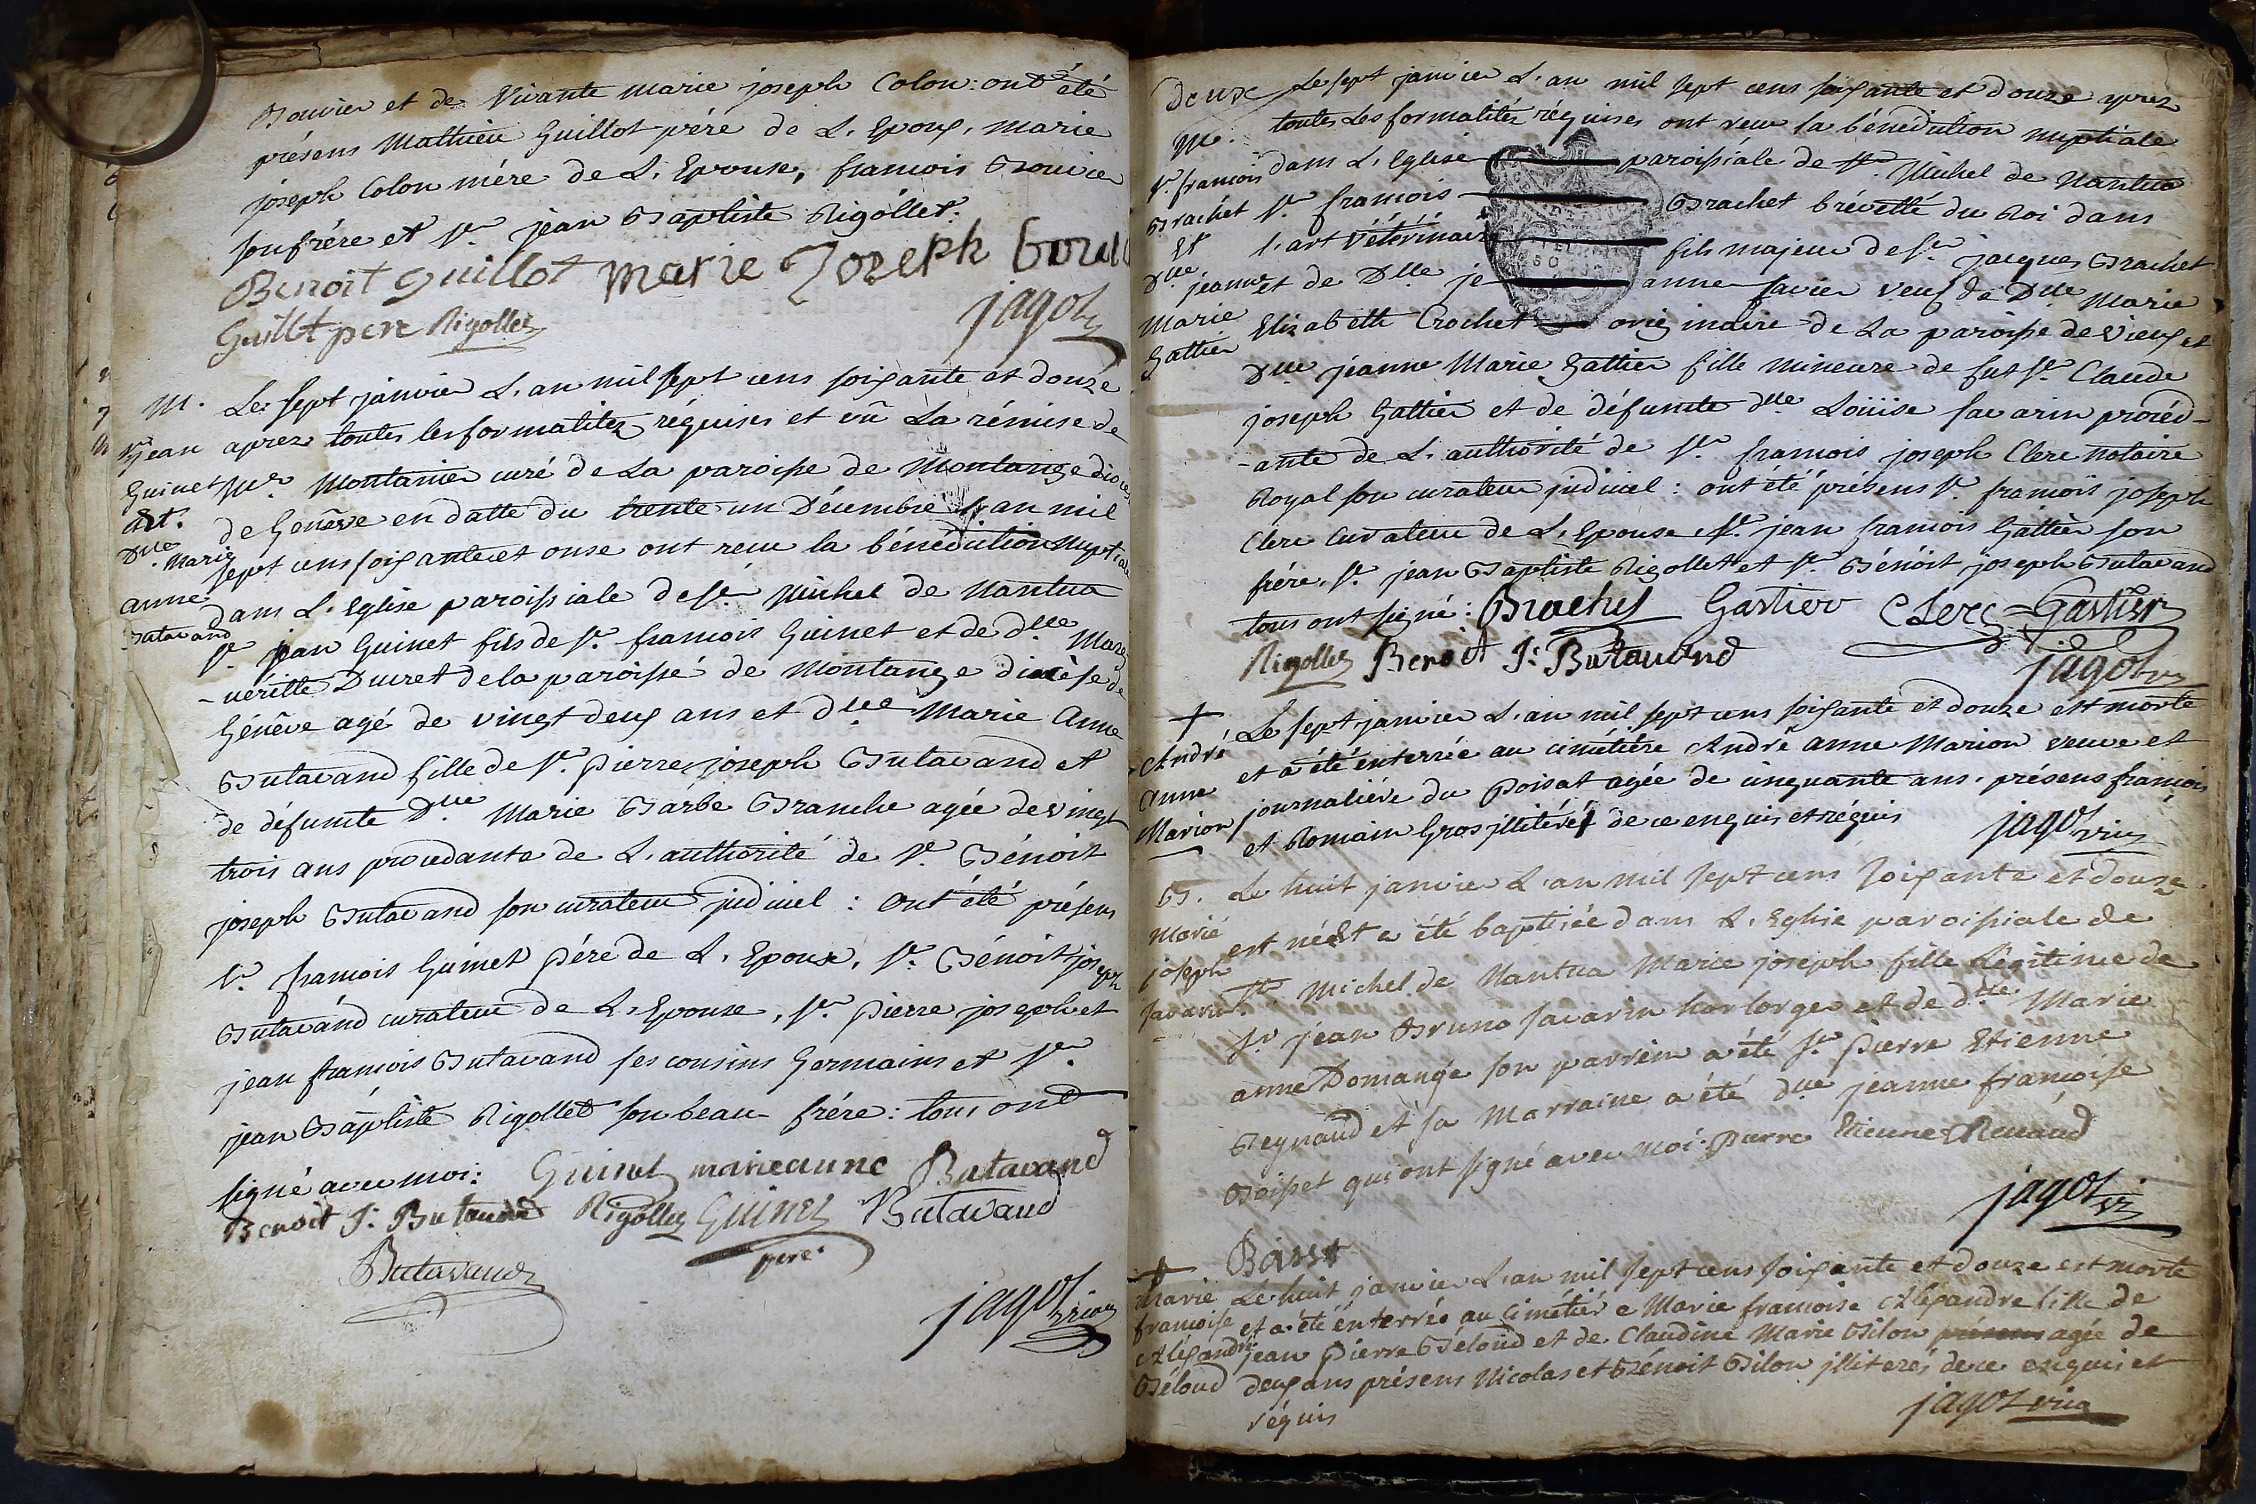 Bouvier et de Vivante Marie joseph Colon : ont été
présens Mathieu Guillot pére de L'Epoux, Marie
joseph Colon mére de L'Epouse, francois Bouvier
son frére et Sr. jean Baptiste Rigollet.
Benoit Guillot Marie Joseph
Guillot pere Rigollet jagot
M. Le sept janvier L'an mil sept cens soixante et douze
Sr jean aprez toutes les formalitez réquises et vû La rémise de
Guinet Mr. Montanier curé de La paroisse de Montange diocese
et. de Genêve en datte du trente un Décembre L'an mil
Dlle Marie sept cens soixante et onse ont recu la bénédiction Nuptiale
anne dans L'Eglise paroissiale de St. Michel de Nantua
Butavand Sr. jean Guinet fils de Sr. francois Guinet et de dlle Marg
-uéritte Ducret de la paroisse de Montange diocèse de
Génêve agé de vingt deux ans et dlle Marie Anne
Butavand fille de Sr. pierre joseph Butavand et
de défunte Dlle Marie Barbe Branche agée de vingt
trois ans procedante de L'authorité de Sr. Bénoit
joseph Butavand son curateur judiciel : ont été présens
Sr. francois Guinet pére de L'Epoux, Sr. Bénoit joseph
Butavand curateur de L'Epouse, Sr. pierre joseph et
jean francois Butavand ses cousins Germains et Sr.
jean Baptiste Rigollet son beau frére : tous ont
signé avec moi : Guinet marie anne Butavand
Benoit J: Butavand Rigollet Guinet Butavand
Butavand pere
jagot vicr
deuxe Le sept janvier L'an mil sept cens soixante et douze aprez
M. toutes Les formalitéz réquises ont recu la bénédiction nuptiale
Sr. francois dans L'Eglise paroissiale de St. Michel de Nantua
Brachet Sr. francois Brachet brévetté du Roi dans
Et l'art Vétérinaire fils majeur de Sr. jacques Brachet
Dlle jeanne et de Dlle je anne favier veuf de Dlle Marie
Marie Elizabeth Crochet originaire de La paroisse de Vieux et
Gattier Dlle jeanne Marie Gattier fille mineure de fut Sr. Claude
joseph Gattier et de défunte dlle Loüise savarin procéd-
-ante de L'authorité de Sr. francois joseph Clerc notaire
Royal son curateur judiciel : ont été présens Sr. francois joseph
Clerc Curateur de L'Epouse, Sr. jean francois Gattier son
frére, Sr. jean Baptiste Rigollet et Sr. Bénoit joseph Butavand
tous ont signé : Brachet Gastier Clerc Gastier
Rigollet Benoit J: Butavand jagot vic
+ Le sept janvier L'an mil sept cens soixante et douze est morte
André et a été énterrée au cimétiére André anne Marion veuve et
anne journaliére du poisat agée de cinquante ans. présens francois
Marion et Romain Gros jlliteréz de ce enquis et réquis jagot vic
B. Le huit janvier L'an mil sept cens soixante et douze
Marie est née Et a été baptisée dans L'Eglise paroissiale de
joseph St. Michel de Nantua Marie joseph fille Légitime de
savarin Sr jean Bruno savarin horloger et de dlle Marie
anne Domange son parrein a été Sr. pierre Etienne
Reynaud et sa Marraine a été dlle jeanne francoise
Boisset qui ont signé avec moi. pierre Etienne Renaud
jagot vic
+
Marie Le huit janvier L'an mil sept cens soixante et douze est morte
francoise et a été énterrée au Cimétiére Marie francoise Aléxandre fille de
Aléxandre jean pierre Béloud et de Claudine Marie Bilon présens agée de
Béloud deux ans présens Nicolas et Bénoit Bilon jlliterés de ce enquis et
réquis jagot vic